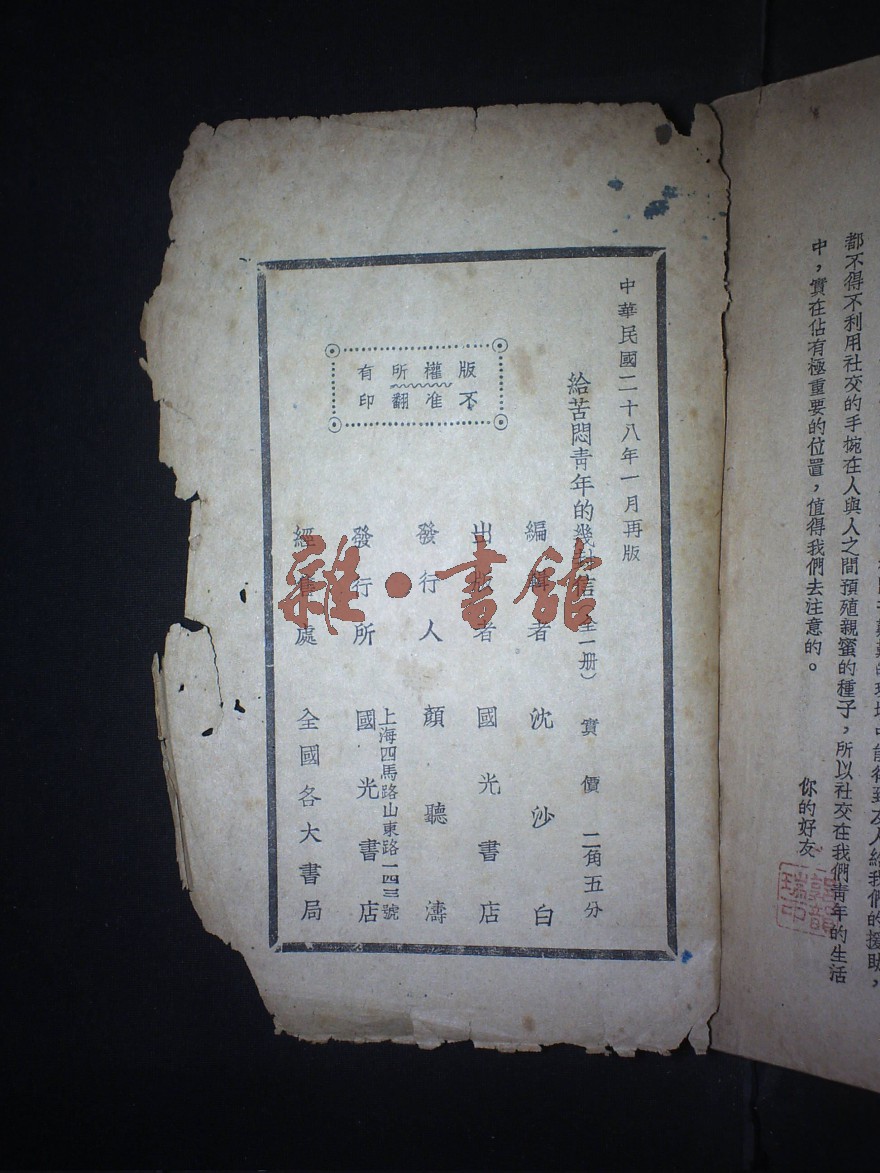 都不得不利用社交的手捥在人與人之間預殖親蜜的種子，所以社交在我們靑年的生活
中，實在佔有極重要的位置，值得我們去注意的。
你的好友
中華民國二十八年一月再版
給苦悶靑年的幾封信（全一册）
實價 二角五分
編輯者 沈沙白
出版者 國光書店
發行人 顏聽濤
上海四馬路山東路一四三號
發行所 國光書店
經售處 全國各大書局
版權所有
不准翻印
雜·書館